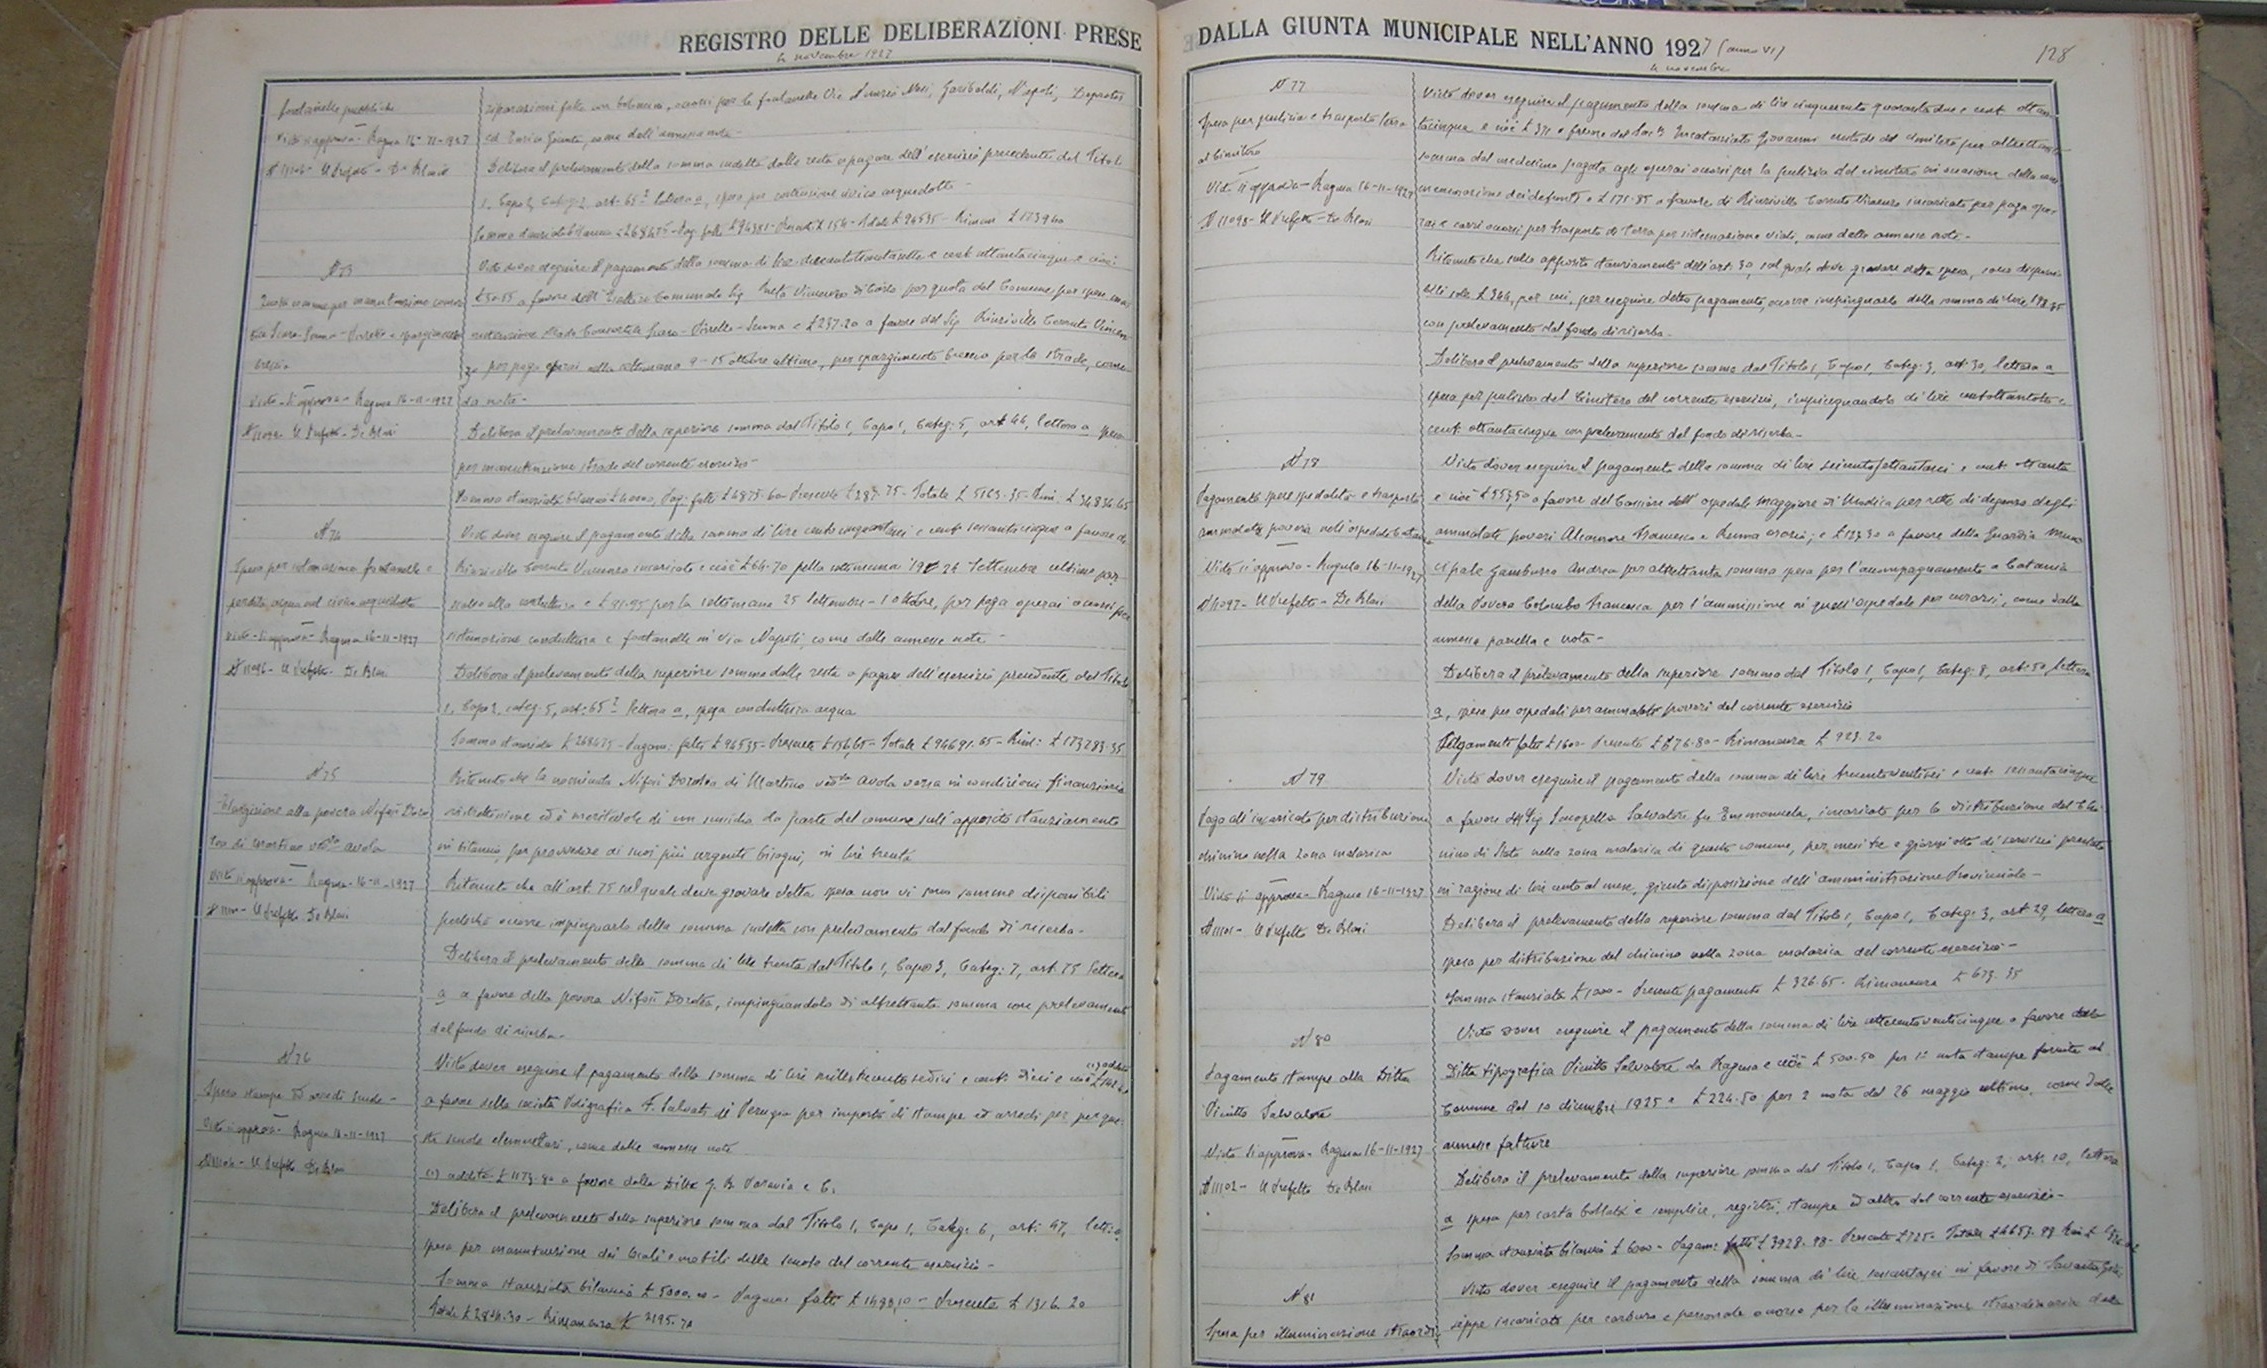 REGISTRO DELLE DELIBERAZIONI PRESE
4 novembre 1927
fontanelle pubbliche
Visto si approva - Ragusa 16-11-1927
Il Prefetto - De Blasi
riparazioni fatte con bitumina, occorsi per le fontanelle Via Garibaldi, Napoli,
come dall'annessa nota -
Delibera il prelevamento della somma sudetta dalle reste a pagare dell'esercizio precedente del Titolo
1, Capo 2, Categ. 5, art. 65² lettera a, spesa per costruzione civico acquedotto -
Somma stanziata bilancio £ 268475 - Pag. fatti £ 94381 - Presente £ 154 - Totale £ 94535 - Riman. £ 173940
N 73
Visto dover eseguire il pagamento della somma di lire duecentottantasette e cent. settantacinque e cioè:
£ 50.55 a favore dell'Esattore Comunale Sig. Vincenzo di Carlo per quota del Comune, per spese ma
nutenzione strada Consortile e £ 237.20 a favore del Sig. Rinzivillo Corrado Vincen
zo per paga operai nella settimana 9-15 ottobre ultimo, per spargimento breccia per la strada, come
da nota -
Visto - Si approva - Ragusa 16-11-1927
Il Prefetto - De Blasi
Delibera il prelevamento della superiore somma dal Titolo 1, Capo 1, Categ. 5, art. 44, lettera a spesa
per manutenzione strade del corrente esercizio -
Somma stanziata bilancio £ 40000, Pag. fatti £ 4875.60 - Presente £ 287.75 - Totale £ 5163.35 - Rim. £ 34836.65
N 74
Spesa per sistemazione fontanelle e
perdita acqua nel civico acquedotto
Visto - Si approva - Ragusa 16-11-1927
Il Prefetto - De Blasi
Visto dover eseguire il pagamento della somma di lire cento cinquantasei e cent. sessantacinque a favore di
Rinzivillo Corrado Vincenzo incaricato e cioè £ 64.70 nella settimana 19 24 Settembre ultimo per
e £ 91.95 per la settimana 25 Settembre - 1 ottobre, per paga operai occorsi per
sistemazione conduttura e fontanelle in via Napoli, come dalle annesse note -
Delibera il prelevamento della superiore somma dalle reste a pagare dell'esercizio precedente del Titolo
1, Capo 2, categ. 5, art. 65² lettera a, spesa conduttura acqua
Somma stanziata £ 268475 - Pagam. fatti £ 94535 - Presente £ 156,65 - Totale £ 94691.65 - Rim: £ 173783.35
N 75
Elargizione alla povera Nifosì Doro
tea di Martino ved.va Avola
Visto si approva - Ragusa - 16-11-1927
Il Prefetto De Blasi
Ritenuto che la nominata Nifosì Dorotea di Martino ved.va Avola versa in condizioni finanziarie
ristrettissime ed è meritevole di un sussidio da parte del comune sull'apposito stanziamento
in bilancio, per provvedere ai suoi più urgenti bisogni, in lire trenta
Ritenuto che all'art. 75 sul quale deve gravare detta spesa non vi sono somme disponibili
perlochè occorre impinguarlo della somma sudetta con prelevamento dal fondo di riserba -
Delibera il prelevamento della somma di lire trenta dal Titolo 1, Capo 3, Categ. 7, art. 75 lettera
a a favore della povera Nifosì Dorotea, impinguandola di altrettanta somma con prelevamento
dal fondo di riserba -
N 76
Spesa stampe ed arredi scuole -
Visto si approva - Ragusa 16-11-1927
Il Prefetto De Blasi
Visto dover eseguire il pagamento della somma di lire milletrecentosedici e cent. dieci e cioè
a favore della società Poligrafica F. Salvati di Perugia per importo di stampe ed arredi per queste
scuole elementari, come dalle annesse note
(1) addita £ 1173.80 a favore della Ditta G. B. Paravia e C.
Delibera il prelevamento della superiore somma dal Titolo 1, Capo 1, Categ. 6, art. 47, lett. a
spesa per manutenzione dei locali e mobili delle scuole del corrente esercizio -
Somma stanziata bilancio £ 5000.00 - Pagam. fatti £ 1488,10 - Presente £ 1316.20
Totale £ 2804.30 - Rimanenza £ 2195.70
DALLA GIUNTA MUNICIPALE NELL'ANNO 1927 (anno VI)
4 novembre
128
N 77
Spesa per pulizia e trasporto terra
al Cimitero
Visto si approva - Ragusa 16-11-1927
N 11098 - Il Prefetto - De Blasi
Visto dover eseguire il pagamento della somma di lire cinquecento quarantadue e cent. ottan
tacinque e cioè £ 371 a favore del Giovanni custode del cimitero per altrettanta
somma dal medesimo pagata agli operai occorsi per la pulizia del cimitero in occasione della com
memorazione dei defunti e £ 171.85 a favore di Rinzivillo Corrado Vincenzo incaricato per paga ope
rai e carri occorsi per trasporto di terra per sistemazione viali, come dalle annesse note -
Ritenuto che sullo apposito stanziamento dell'art. 30, sul quale deve gravare detta spesa, sono disponi
bili sole £ 344, per cui, per eseguire detto pagamento, occorre impinguarlo della somma di lire 198.85
con prelevamento dal fondo di riserba -
Delibera il prelevamento della superiore somma dal Titolo 1, Capo 1, Categ. 3, art. 30, lettera a
spesa per pulizia del Cimitero del corrente esercizio, impinguandola di lire
cent. ottantacinque con prelevamento dal fondo di riserba -
N 78
Pagamento spese spedalità e trasporto
ammalati poveri nell'ospedale Catania
Visto si approva - Ragusa 16-11-1927
N 11097 - Il Prefetto - De Blasi
Visto dover eseguire il pagamento della somma di lire seicentosettantasei e cent. ottanta
e cioè £ 553,50 a favore del Cassiere dell'ospedale Maggiore di Modica per rette di degenza degli
ammalati poveri Francesco e Rosaria; e £ 123.30 a favore della Guardia Muni
cipale Gambuzza Andrea per altrettanta somma spesa per l'accompagnamento a Catania
della povera Colombo Francesca per l'ammissione in quell'Ospedale per curarsi, come dalla
annessa parcella e nota -
Delibera il prelevamento della superiore somma dal Titolo 1, Capo 1, Categ. 8, art. 50, lettera
a, spesa per ospedali per ammalati poveri del corrente esercizio
Pagamento fatto £ 1600 - Presente £ 676.80 - Rimanenza £ 923.20
N 79
Paga all'incaricato per distribuzione
chinino nella zona malarica
Visto si approva - Ragusa 16-11-1927
N 11101 - Il Prefetto De Blasi
Visto dover eseguire il pagamento della somma di lire trecentoventisei e cent. sessantacinque
a favore del Sig. Salvatore fu Emmanuele, incaricato per la distribuzione del Chi
nino di Stato nella zona malarica di questo comune, per mesi tre e giorni otto di servizio prestato
in ragione di lire cento al mese, giusta disposizione dell'amministrazione Provinciale -
Delibera il prelevamento della superiore somma dal Titolo 1, Capo 1, Categ. 3, art. 29, lettera a
spesa per distribuzione del chinino nella zona malarica del corrente esercizio -
Somma stanziata £ 1000 - Presente pagamento £ 326.65 - Rimanenza £ 673.35
N 80
Pagamento stampe alla Ditta
Picitto Salvatore
Visto si approva - Ragusa 16-11-1927
N 11102 - Il Prefetto De Blasi
Visto dover eseguire il pagamento della somma di lire settecentoventicinque a favore della
Ditta tipografica Picitto Salvatore da Ragusa e cioè £ 500.50 per 1ª nota stampe fornite al
Comune dal 10 dicembre 1925 e £ 224.50 per 2 nota del 26 maggio ultimo, come dalle
annesse fatture
Delibera il prelevamento della superiore somma dal Titolo 1, Capo 1, Categ. 2, art. 10, lettera
a spesa per carta bollata e semplice, registri, stampe ed altro del corrente esercizio -
Somma stanziata bilancio £ 6000 - Pagam. fatti £ 3928.98 - Presente £ 725 - Totale £ 4653.98
N 81
Spesa per illuminazione straordi
Visto dover eseguire il pagamento della somma di lire sessantasei in favore di
seppe incaricato per carburo e personale occorso per la illuminazione straordinaria